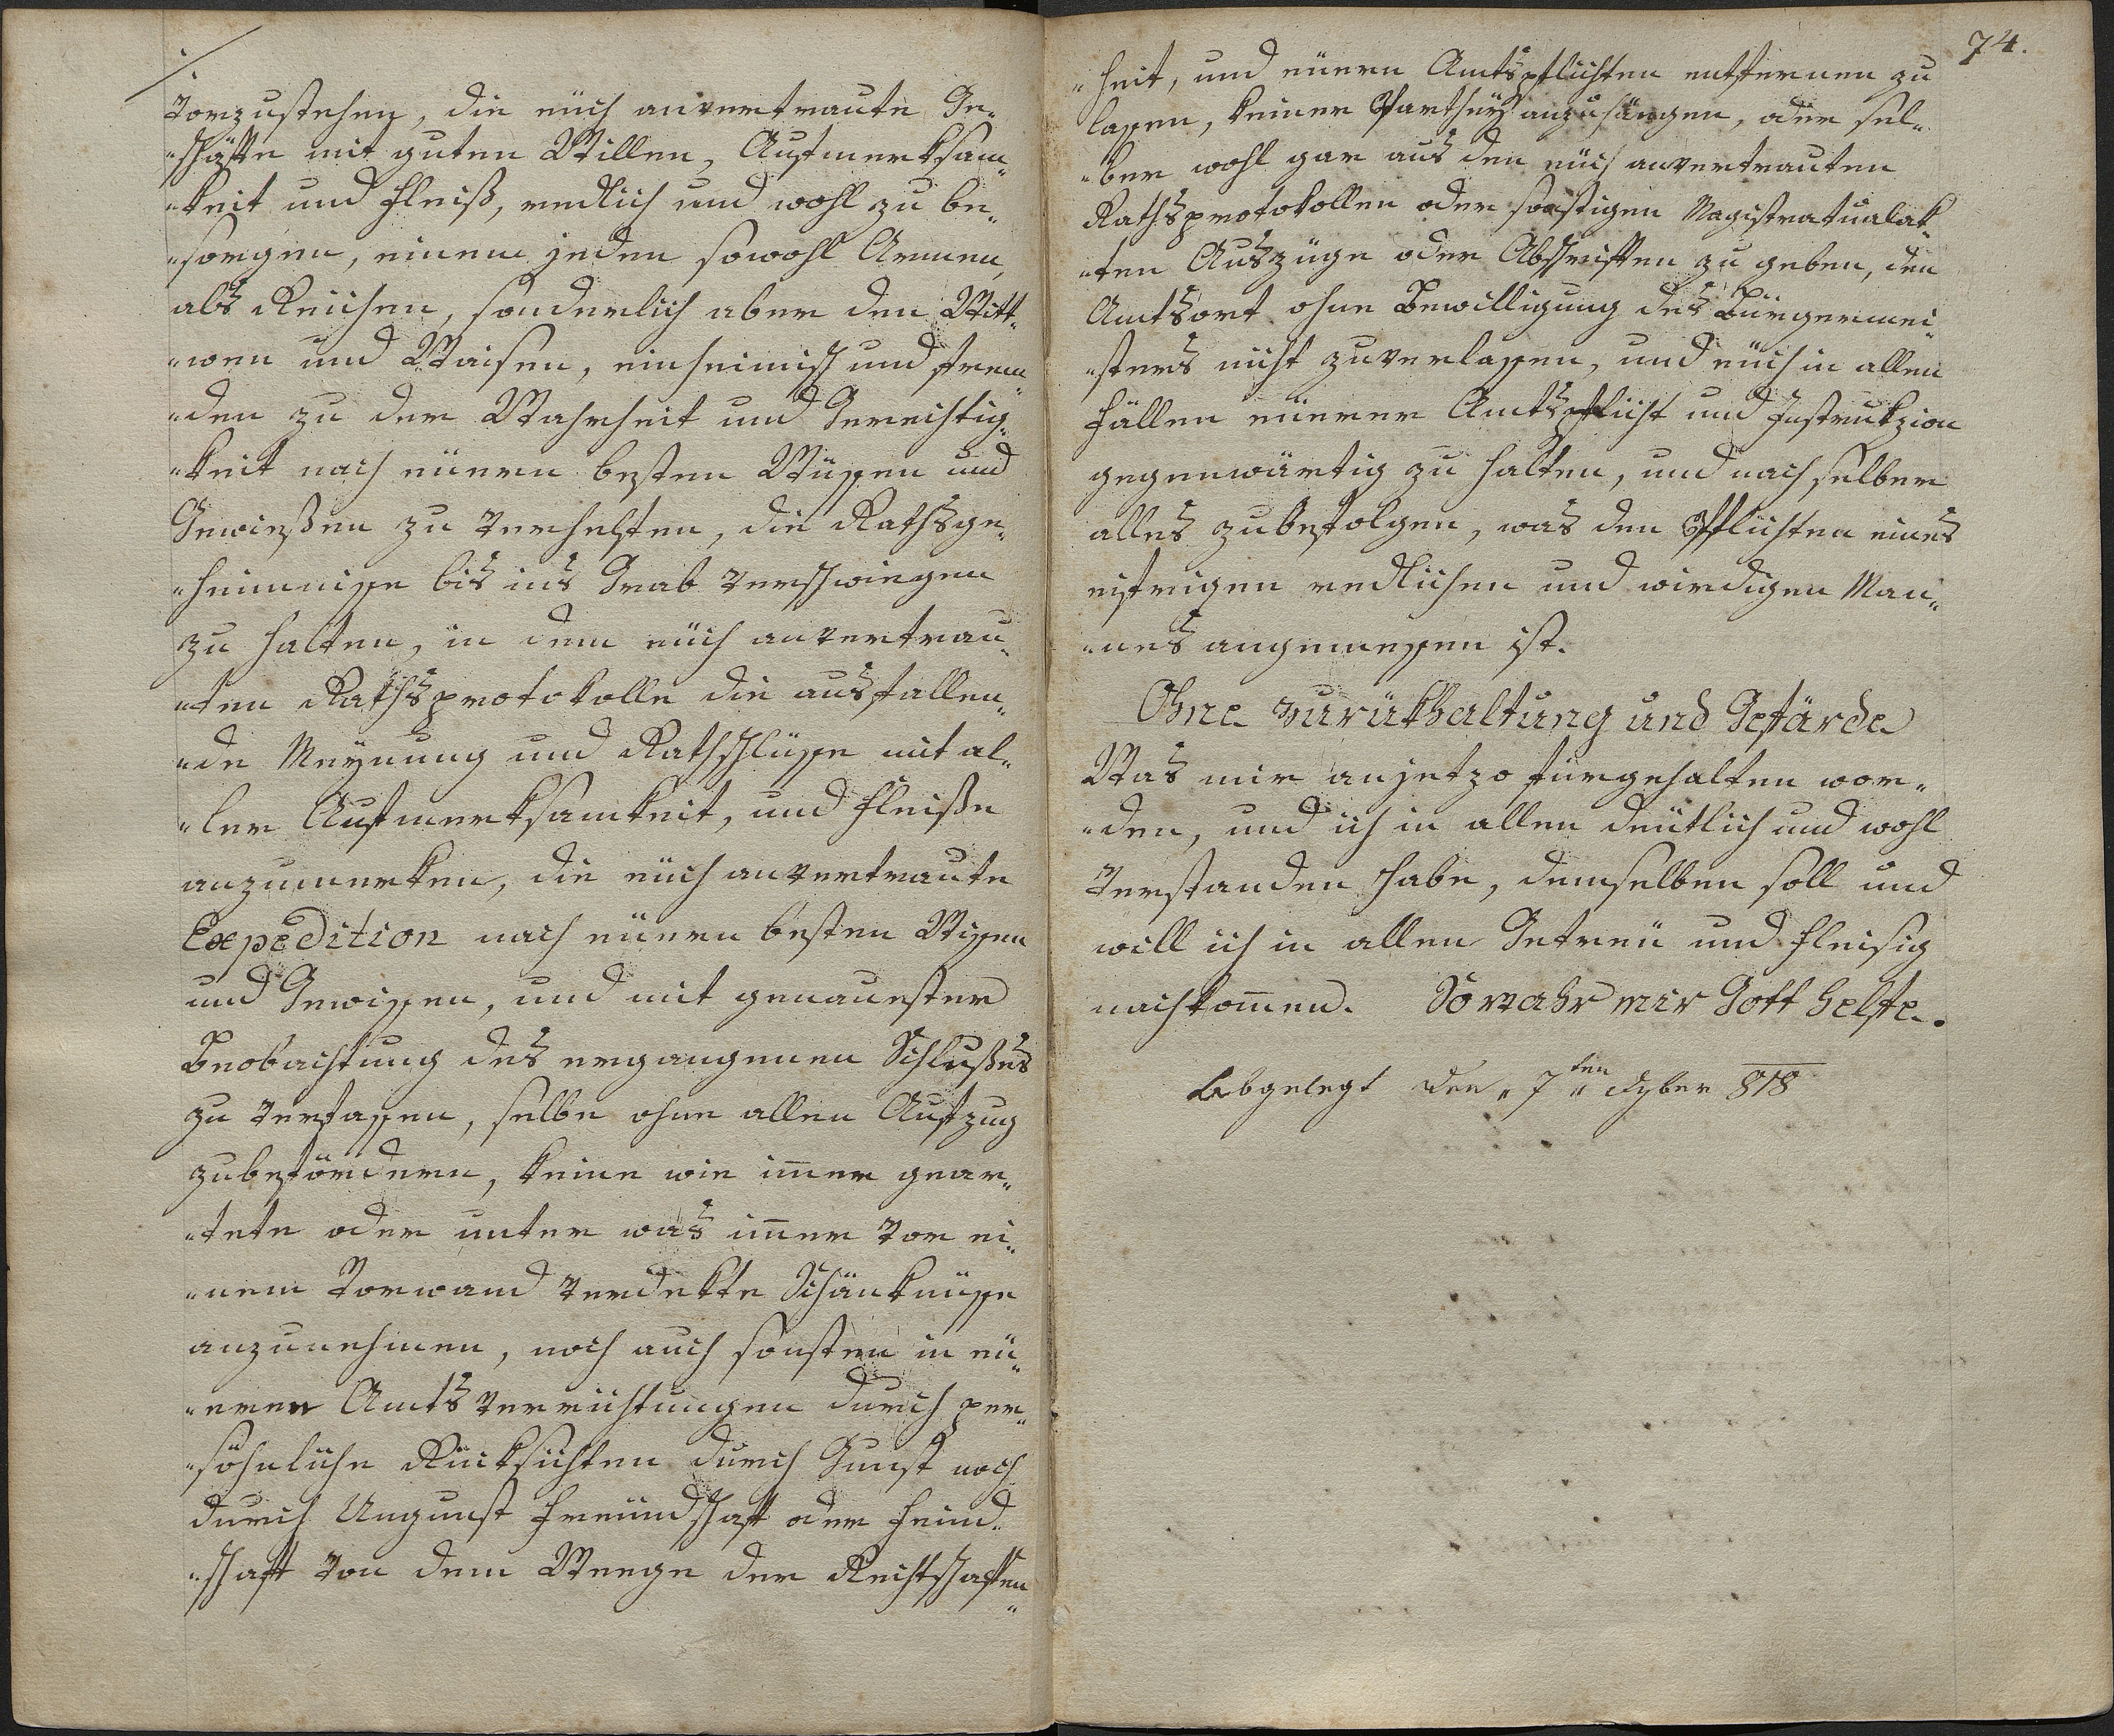 vorzustehen, die eüch anvertraute Ge„
„schäfte mit guten Willen, Aufmerksam„
„keit und Fleiß, redlich und wohl zu be„
„sorgen, einem jeden sowohl Armen,
als Reichen, sonderlich aber den Witt„
„wen und Waisen, einheimisch und frem„
„den zu der Wahrheit und Gerechtig„
„keit nach eüern besten Wüssen und
Gewießen zu verhelfen, die Rathsge„
„heimnisse bis ins Grab verschwiegen
zu halten, in dem eüch anvertrau„
„ten Rathsprotokolle die ausfallen„
„de Meynung und Rathschlüsse mit al„
„ler Aufmerksamkeit, und Fleiße
anzumerken, die eüch anvertraute
Expedition nach eüern besten Wissen
und Gewissen, und mit genauester
Beobachtung des ergangenen Schlußes
zu verfassen, selbe ohne allen Aufzug
zubefördern, keine wie im̅er gear„
„tete oder unter was im̅er vor ei„
„nem Vorwand verdekte Schänknüsse
anzunehmen, noch auch sonsten in eü„
„eren Amtsverrichtungen durch per„
„söhnliche Rücksichten durch Gunst noch
durch Ungunst Freündschaft oder Feind„
„schaft von dem Weege der Rechtschaffen„
74.
„heit, und eüern Amtspflichten entfernen zu
lassen, keiner Partheÿ anzuhängen, oder sel„
„ber wohl gar aus den eüch anvertrauten
Rathsprotokollen oder sonstigen Magistratualak„
„ten Auszüge oder Abschriften zu geben, den
Amtsort ohne Bewilligung des Bürgermei„
„sters nicht zuverlassen, und eüch in allen
Fällen eüerer Amtspflicht und Instrukzion
gegenwärtig zu halten, und nach selber
alles zubefolgen, was den Pflichten eines
eifrigen redlichen und wirdigen Man„
„nes angemessen ist.
Ohne zurükhaltung und Gefärde
Was mir anjetzo fürgehalten wor„
„den, und ich in allen deütlich und wohl
verstanden habe, demselben soll und
will ich in allen Getreü und fleisig
nachkom̅en. So wahr mir Gott helfe.
Abgelegt den „7ten„ 818